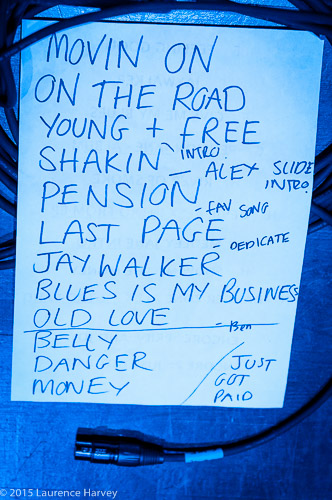 MOVIN ON
ON THE ROAD
YOUNG + FREE
SHAKIN INTRO
- ALEX SLIDE INTRO
PENSION
- FAV SONG
LAST PAGE
- DEDICATE
JAYWALKER
BLUES IS MY BUSINESS
OLD LOVE - Ben
BELLY
DANGER
MONEY / JUST GOT PAID
© 2015 Laurence Harvey